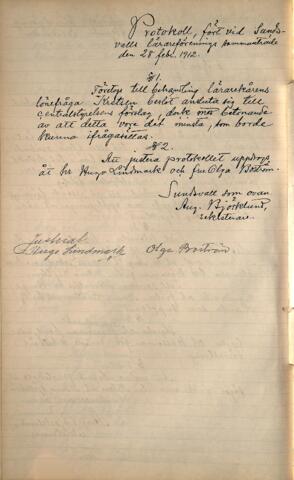 Protokoll, fört vid Sunds-
valls lärareförenings sammanträde
den 28 febr. 1912.
§1.
Företogs till behandling lärarekårens
lönefråga. Kretsen beslöt ansluta sig till
centralstyrelsens förslag, dock med betonande
av att detta vore det minsta, som borde
kunna ifrågasättas.
§2.
Att justera protokollet uppdrogs
åt hr Hugo Lindmark och fru Olga Boström.
Sundsvall som ovan
Aug. Björklund,
sekreterare.
Justerat:
Hugo Lindmark Olga Boström